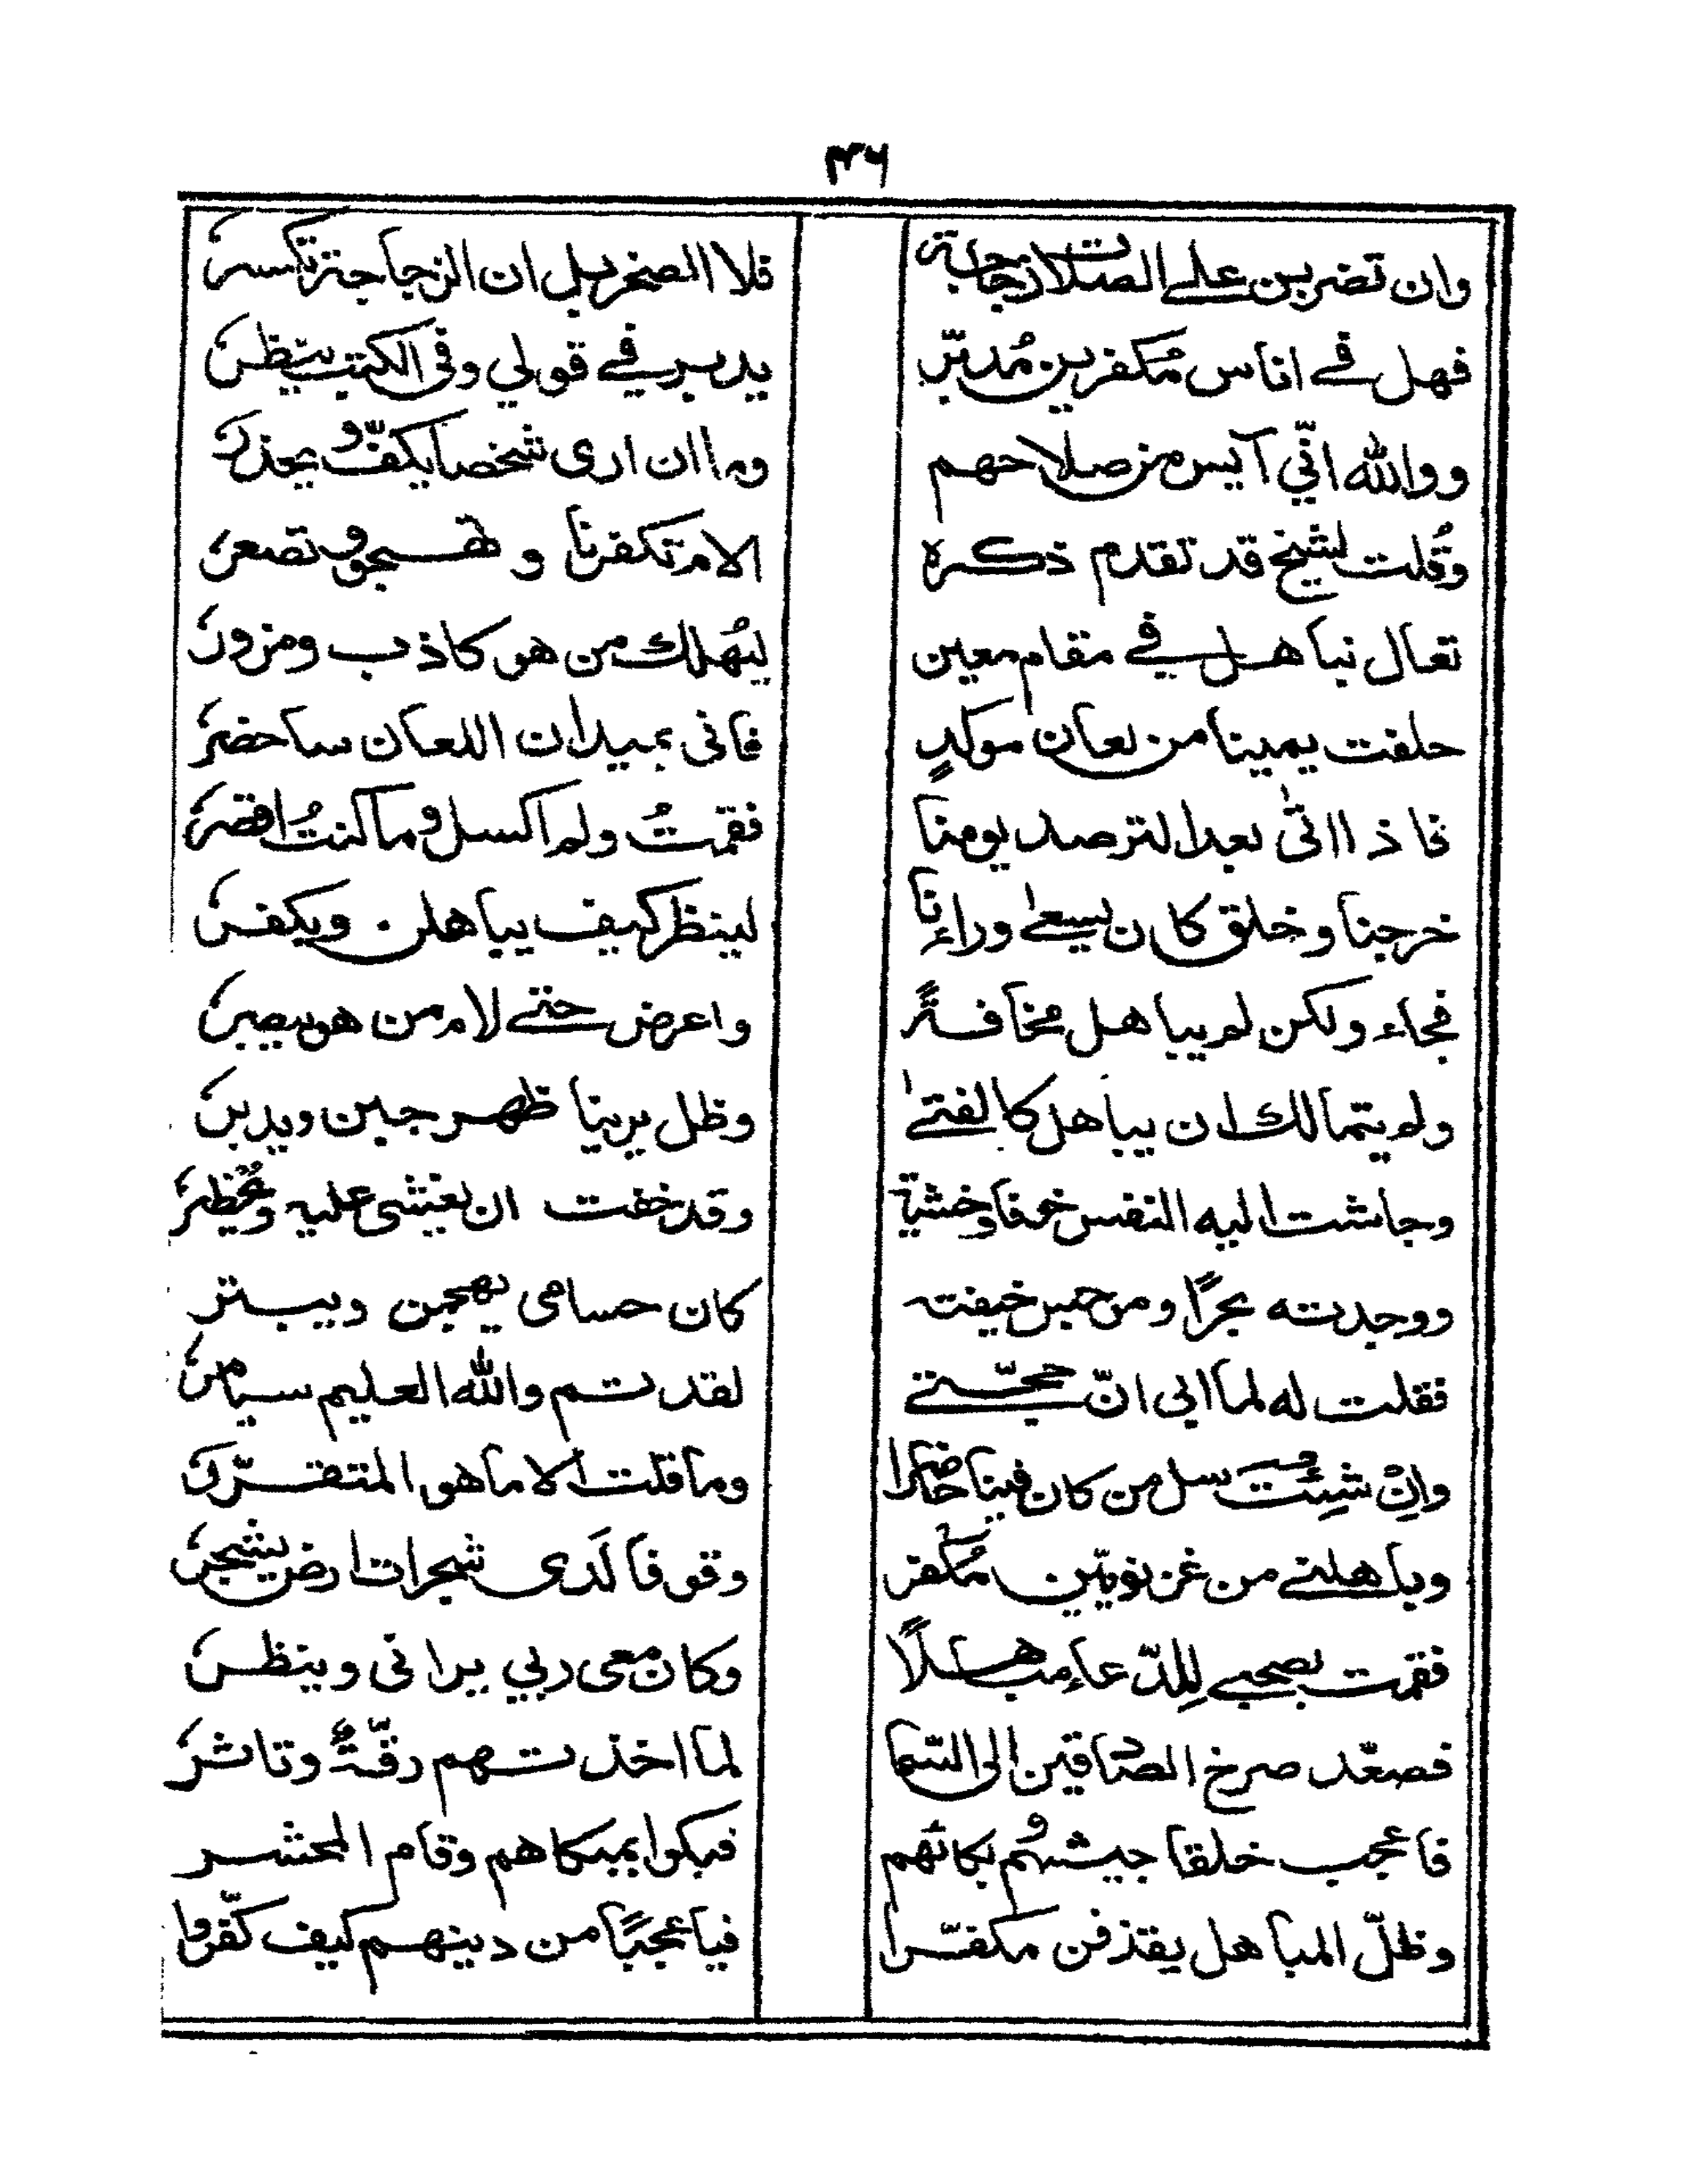 ٣٦
وان تضربن على الصلات زجاجة فلا الصخر بل ان الزجاجة تكسر
فهل في اناس مكفرين مُدبّر يدبر في قولي وفي الكتب ينظر
ووالله انّي آيس من صلاحهم وما ان ارى شخصا يكفّ و يعذر
وقُلت لشيخ قد تقدم ذكره الام تكفرنا و تهجو و تصعر
تعال نباهل في مقام معين ليُهلك من هو كاذب ومزور
حلفت يمينا من لعان موكدٍ فانى بميدان اللعان ساحضر
فاذا اتى بعد الترصد يومنا فقمتُ ولم اكسل وما كنتُ اقصر
خرجنا وخلق كان يسعى وراءنا لينظر كيف يباهلن ويكفر
فجاء ولكن لم يباهل مخافةً واعرض حتى لام من هو يبصر
ولم يتمالك ان يباهل كالفتى وظل يرينا ظهر جبن ويدبر
وجاشت اليه النفس خوفا وخشية وقد خفت ان يغشى عليه ويُحظر
ووجدته بحرًا ومن خيفته كان حسامى يهجمن ويبتر
فقلت له لما ابى انّ حجّتى لقد تم والله العليم سيامر
وانْ شئت سل من كان فينا حاضرا وما قلت الا ما هو المتقرّر
وباهلنى من غزنويّين مُكفر وقوفا لَدى شجرات ارض يشجر
فقمت بصحبى للدّعاء مباهلًا وكان معى ربي يرانى وينظر
فصعّد صرخ الصادقين الى السّما لما اخذتهم رقّةٌ وتاثر
فاعجب خلقا جيشهم و بكائهم فبكوا بمبكاهم وقام المحشر
وظلّ المباهل يقذفن مكفّرا فيا عجبًا من دينهم كيف كفّروا